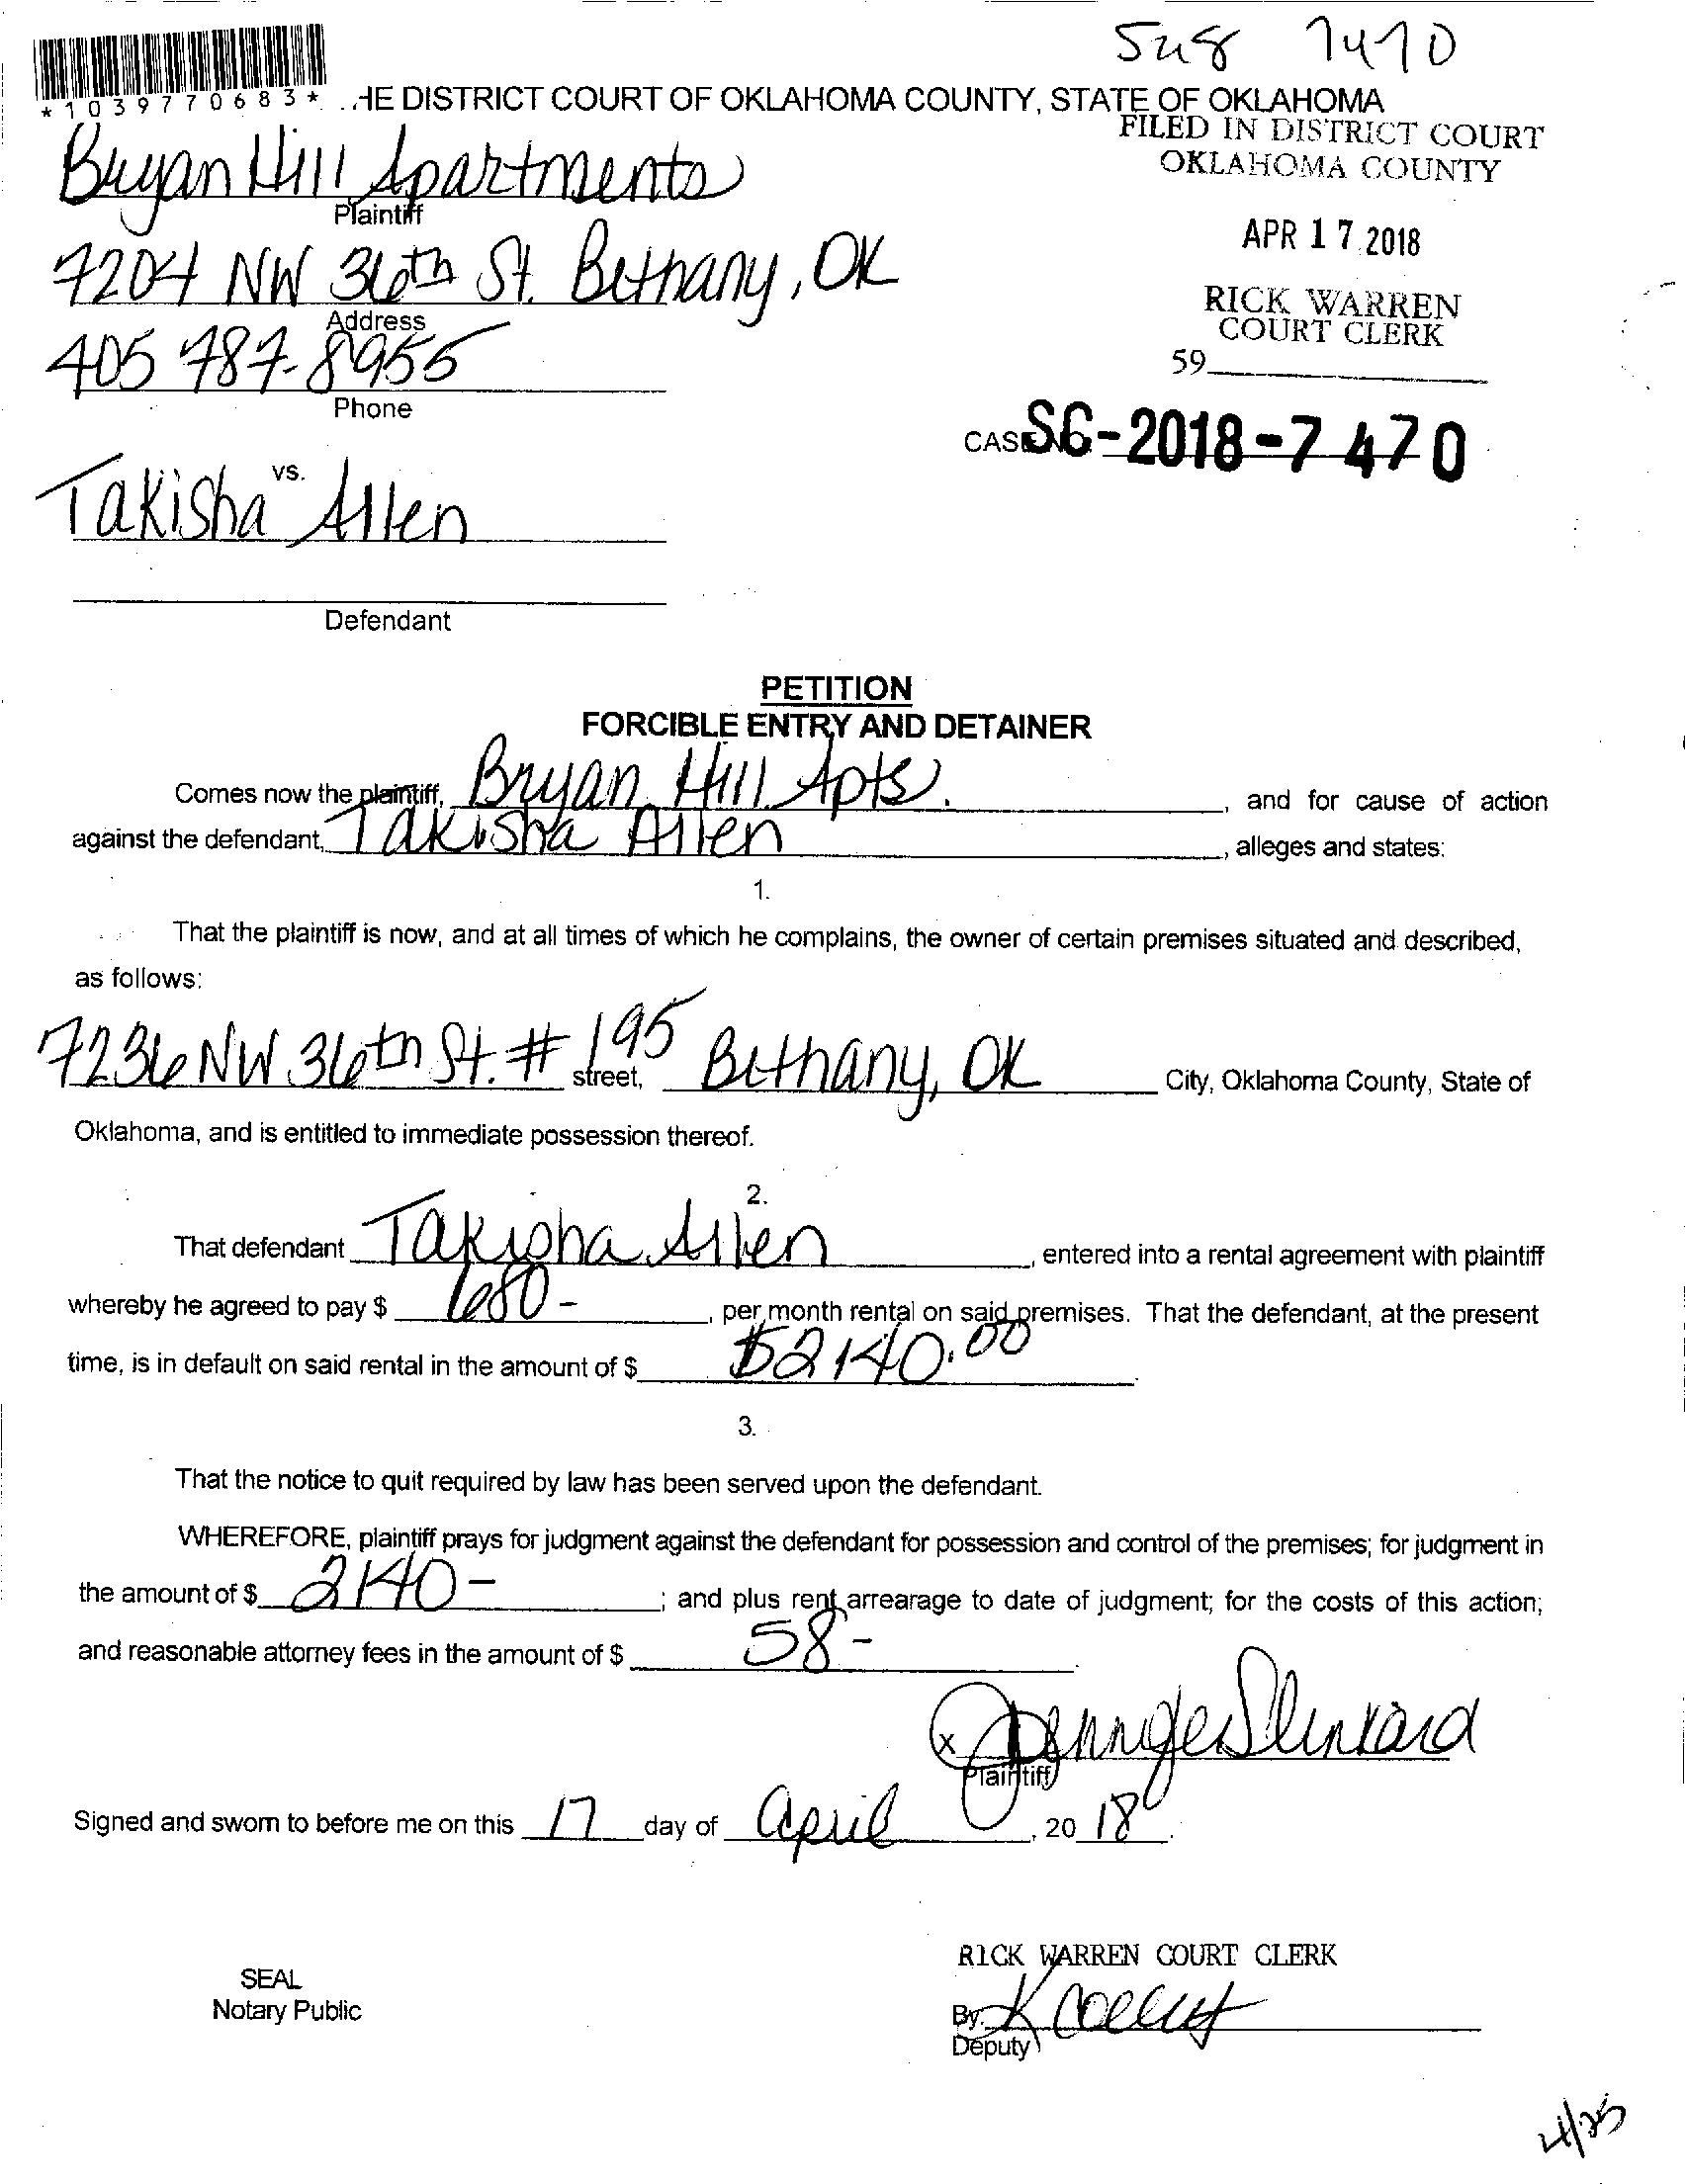 *1039770683*
HE DISTRICT COURT OF OKLAHOMA COUNTY, STATE OF OKLAHOMA
FILED IN DISTRICT COURT
OKLAHOMA COUNTY
Bryan Hill Apartments
Plaintiff
APR 17 2018
7204 NW 36th St. Bethany, OK
Address
RICK WARREN
COURT CLERK
405 787-8955
Phone
59
CASE NO. SC-2018-7470
vs.
Takisha Allen
Defendant
PETITION
FORCIBLE ENTRY AND DETAINER
Comes now the plaintiff, Bryan Hill Apts. , and for cause of action
against the defendant, Takisha Allen , alleges and states:
1.
That the plaintiff is now, and at all times of which he complains, the owner of certain premises situated and described,
as follows:
7236 NW 36th St. # 195 street, Bethany, OK City, Oklahoma County, State of
Oklahoma, and is entitled to immediate possession thereof.
2.
That defendant Takisha Allen , entered into a rental agreement with plaintiff
whereby he agreed to pay $ 680- , per month rental on said premises. That the defendant, at the present
time, is in default on said rental in the amount of $ $2140.00 .
3.
That the notice to quit required by law has been served upon the defendant.
WHEREFORE, plaintiff prays for judgment against the defendant for possession and control of the premises; for judgment in
the amount of $ 2140- ; and plus rent arrearage to date of judgment; for the costs of this action;
and reasonable attorney fees in the amount of $ 58- .
x
Plaintiff
Signed and sworn to before me on this 17 day of April , 20 18 .
RICK WARREN COURT CLERK
SEAL
Notary Public
By:
Deputy
4/25